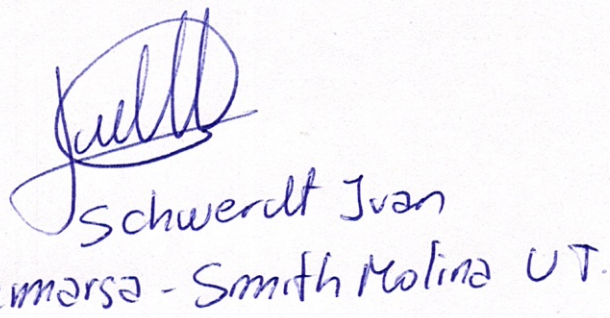 Schwerdt Ivan
- Smith Molina UT.